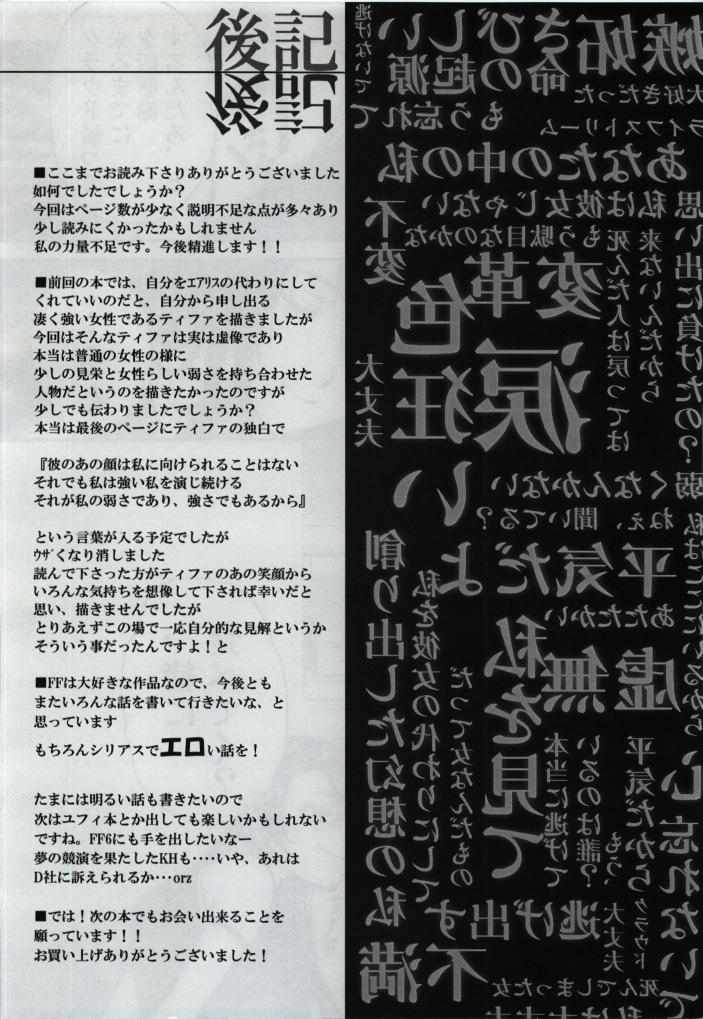 後記
■ここまでお読み下さりありがとうございました
如何でしたでしょうか？
今回はページ数が少なく説明不足な点が多々あり
少し読みにくかったかもしれません
私の力量不足です。今後精進します！！
■前回の本では、自分をｴｱﾘｽの代わりにして
くれていいのだと、自分から申し出る
凄く強い女性であるティファを描きましたが
今回はそんなティファは実は虚像であり
本当は普通の女性の様に
少しの見栄と女性らしい弱さを持ち合わせた
人物だというのを描きたかったのですが
少しでも伝わりましたでしょうか？
本当は最後のページにティファの独白で
『彼のあの顔は私に向けられることはない
それでも私は強い私を演じ続ける
それが私の弱さであり、強さでもあるから』
という言葉が入る予定でしたが
ｳｻﾞくなり消しました
読んで下さった方がティファのあの笑顔から
いろんな気持ちを想像して下されば幸いだと
思い、描きませんでしたが
とりあえずこの場で一応自分的な見解というか
そういう事だったんですよ！と
■FFは大好きな作品なので、今後とも
またいろんな話を書いて行きたいな、と
思っています
もちろんシリアスでエロい話を！
たまには明るい話も書きたいので
次はユフィ本とか出しても楽しいかもしれない
ですね。FF6にも手を出したいなー
夢の競演を果たしたKHも‥‥いや、あれは
D社に訴えられるか･･･orz
■では！次の本でもお会い出来ることを
願っています！！
お買い上げありがとうございました！
嫉妬
さびしい
命の起源
大好きだった
もう忘れて
ライフストリーム
あなたの中の私
私は彼女じゃない
不変
もう駄目なのかな
思い出に負けたの？
来ないんだから
死んだ人は戻っては
変革
色
涙
狂い
大丈夫
弱くなんかない
ねぇ、聞いてる？
私はここにいるから
平気だよ
あたたかい
創り出した幻想の私
私を彼女の代わりにして
虚無
私を見て
だって女なんだもの
本当に逃げて
いるのは誰？
平気だから
もう、
忘れないで
クラウド
大丈夫
逃げ出す
不満
死んでしまった女